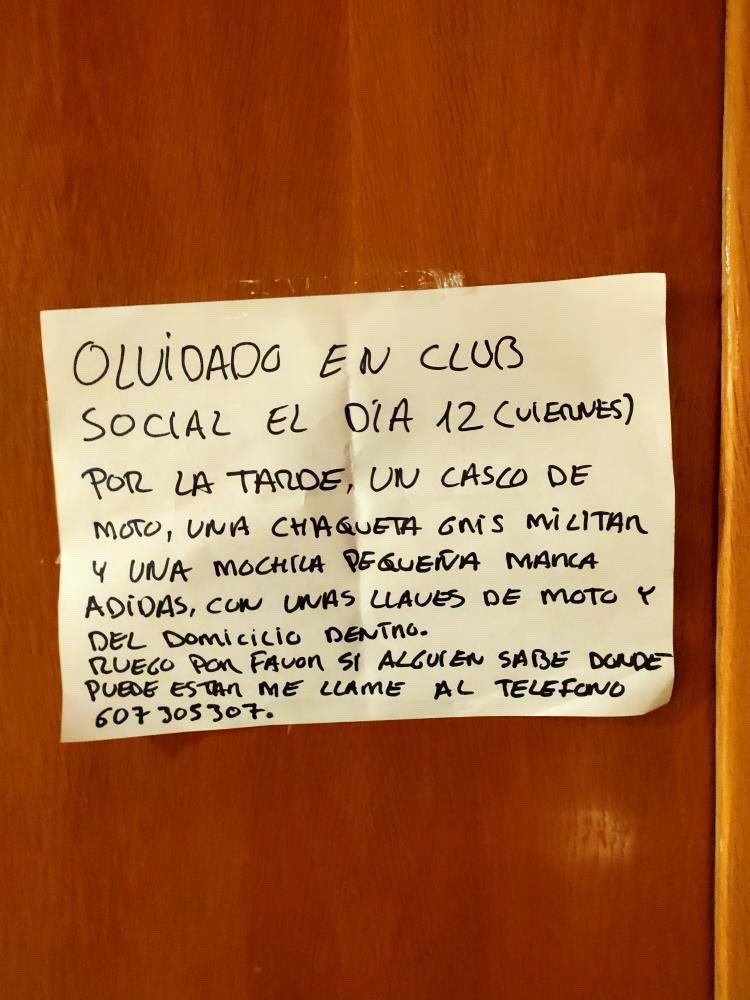 OLVIDADO EN CLUB
SOCIAL EL DÍA 12 (VIERNES)
POR LA TARDE, UN CASCO DE
MOTO, UNA CHAQUETA GRIS MILITAR
Y UNA MOCHILA PEQUEÑA MARCA
ADIDAS, CON UNAS LLAVES DE MOTO Y
DEL DOMICICIO DENTRO.
RUEGO POR FAVOR SI ALGUIEN SABE DONDE
PUEDE ESTAR ME LLAME AL TELEFONO
607 305 307.